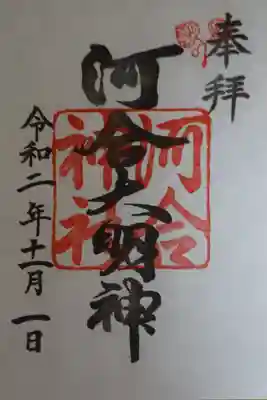 奉拝
河合大明神
河合神社
令和二年十一月一日